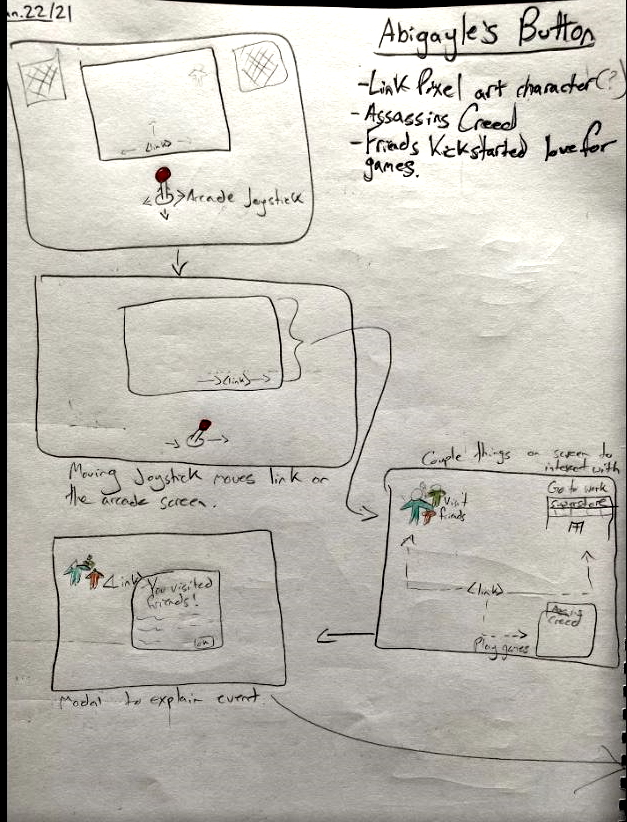 an.22/21
Abigayle's Button
-Link Pixel art character(?)
- Assassins Creed
- Friends Kickstarted love for
games.
Link
Arcade Joystick
(link)
Moving Joystick moves link on
the arcade screen.
Couple things on screen to
interact with
Visit
friends
Go to work
superstore
(link)
Play games
Creed
(Link)
You visited
friends!
Modal to explain event.